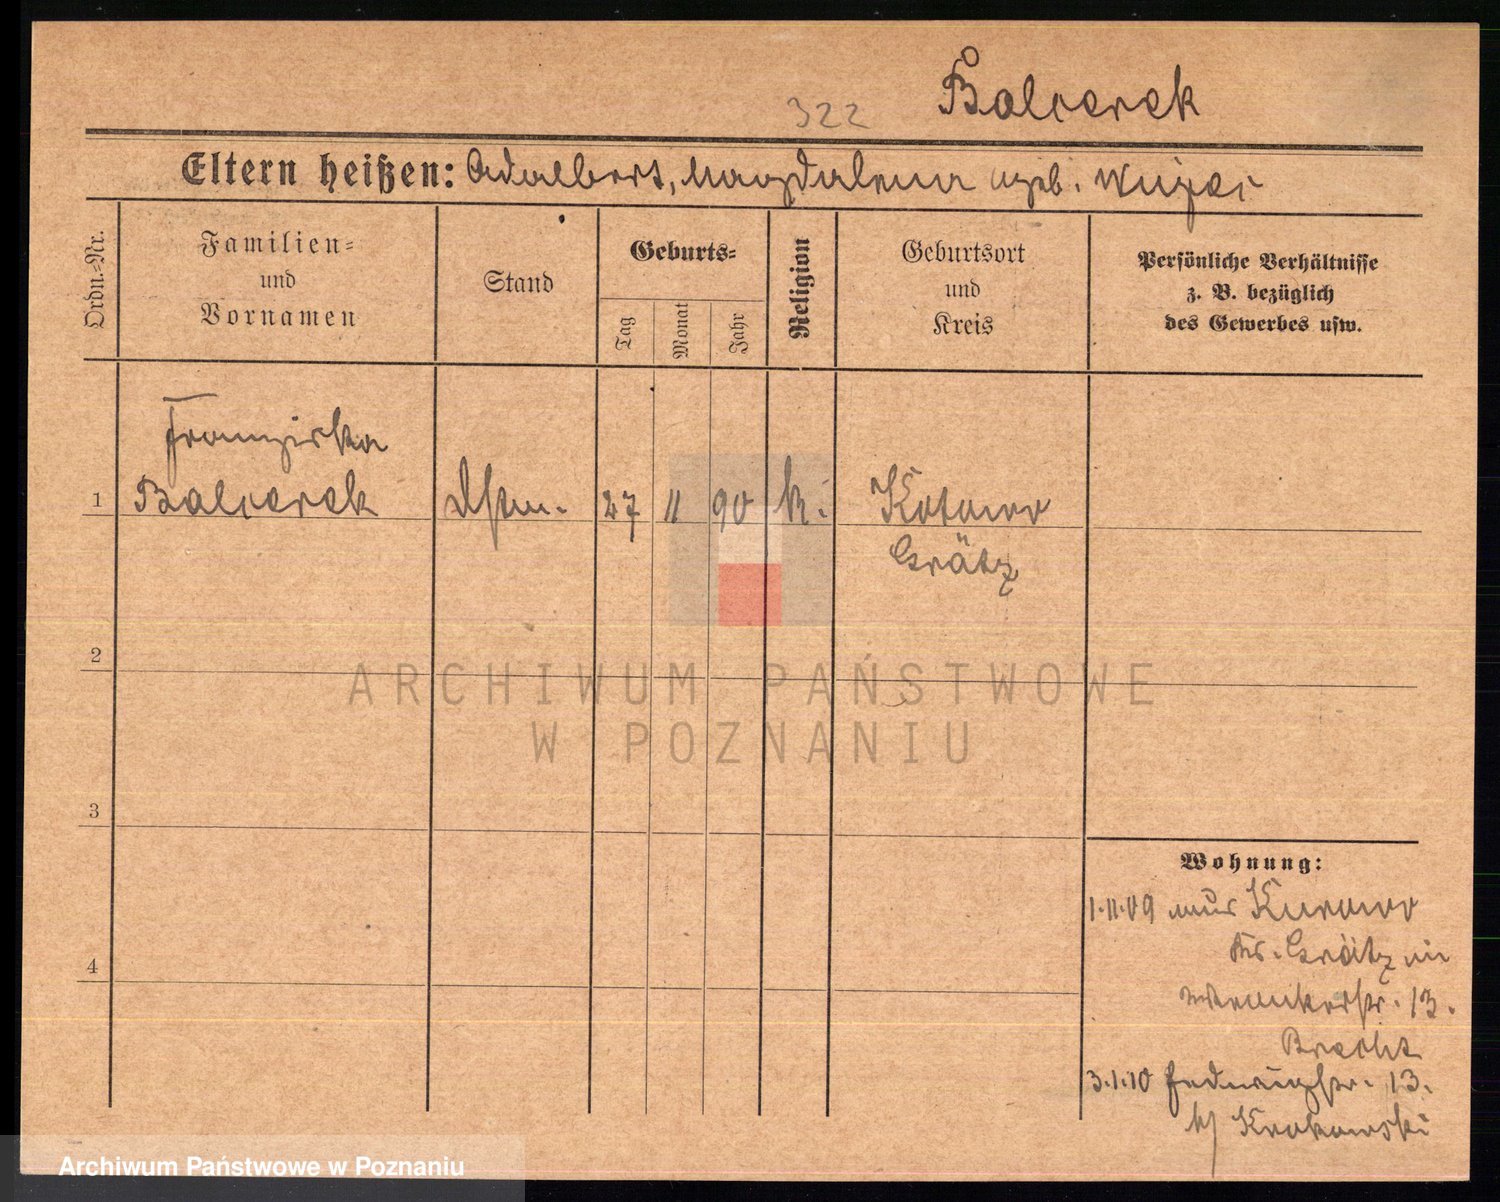 322 Balcerek
Eltern heißen: Adalbert, Magdalena geb.
Ordn.=Nr.
Familien=
und
Vornamen
Stand
Geburts=
Tag
Monat
Jahr
Religion
Geburtsort
und
Kreis
Persönliche Verhältnisse
z. B. bezüglich
des Gewerbes usw.
Franziska
1 Balcerek Dstm. 27 11 90 k. Kotowo
Grätz
2
ARCHIWUM PAŃSTWOWE
W POZNANIU
3
4
Wohnung:
1.11.09 aus Kurowo
Kr. Grätz in
13.
3.1.10 Hedwigstr. 13.
b/ Krakowski
Archiwum Państwowe w Poznaniu